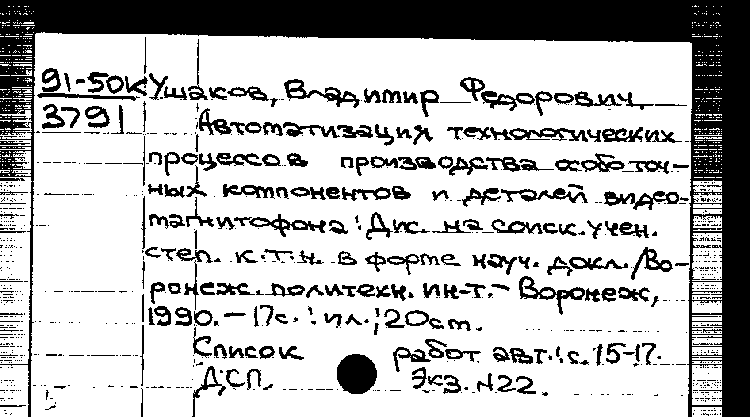 91-50К Ушаков, Владимир Федорович.
3791 Автоматизация технологических
процессов производства особо точ-
ных компонентов и деталей видео-
магнитофона: Дис. на соиск. учен.
степ. к.т.н. в форме науч. докл./Во-
ронеж. политехн. ин-т. - Воронеж,
1990. - 17с.: ил.; 20см.
Список работ авт.: с. 15-17.
ДСП. Экз. N22.